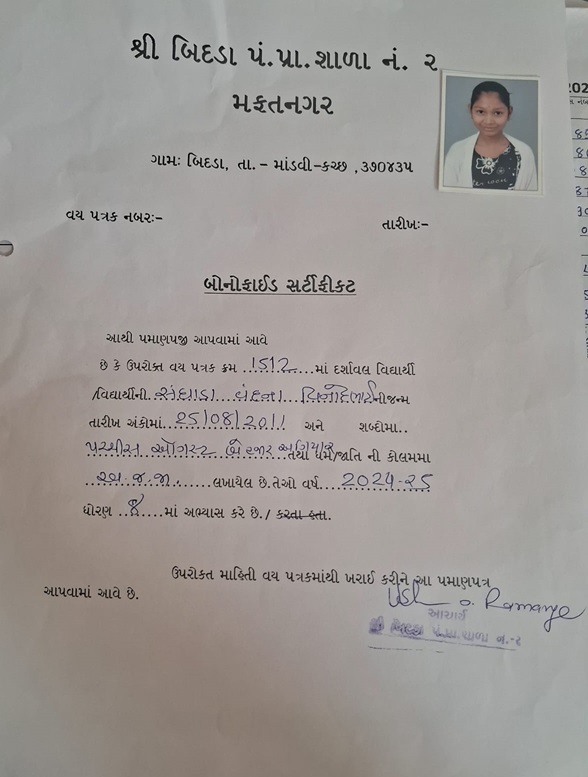 શ્રી બિદડા પં.પ્રા.શાળા નં. ૨
મફતનગર
ગામઃ બિદડા, તા. – માંડવી-કચ્છ ,૩૭૦૪૩૫
વય પત્રક નંબરઃ-
તારીખઃ-
બોનોફાઈડ સર્ટીફીકેટ
આથી પમાણપજી આપવામાં આવે
છે કે ઉપરોક્ત વય પત્રક ક્રમ ...1512....માં દર્શાવલ વિદ્યાર્થી
/વિદ્યાર્થીની..સંઘાડા...વંદના...વિનોદભાઈનીજન્મ
તારીખ અંકોમાં..25/08/2011 અને શબ્દોમા..
પચ્ચીસ ઓગસ્ટ બેહજાર અગિયાર તથા ધર્મ/જાતિ ની કોલમમા
...અ.જ.જા......લખાયેલ છે.તેઓ વર્ષ....2024-25
ધોરણ ..8....માં અભ્યાસ કરે છે./ કરતા હતા.
ઉપરોક્ત માહિતી વય પત્રકમાંથી ખરાઈ કરીને આ પમાણપત્ર
આપવામાં આવે છે.
આચાર્ય
શ્રી બિદડા પં.પ્રા.શાળા નં.-૨